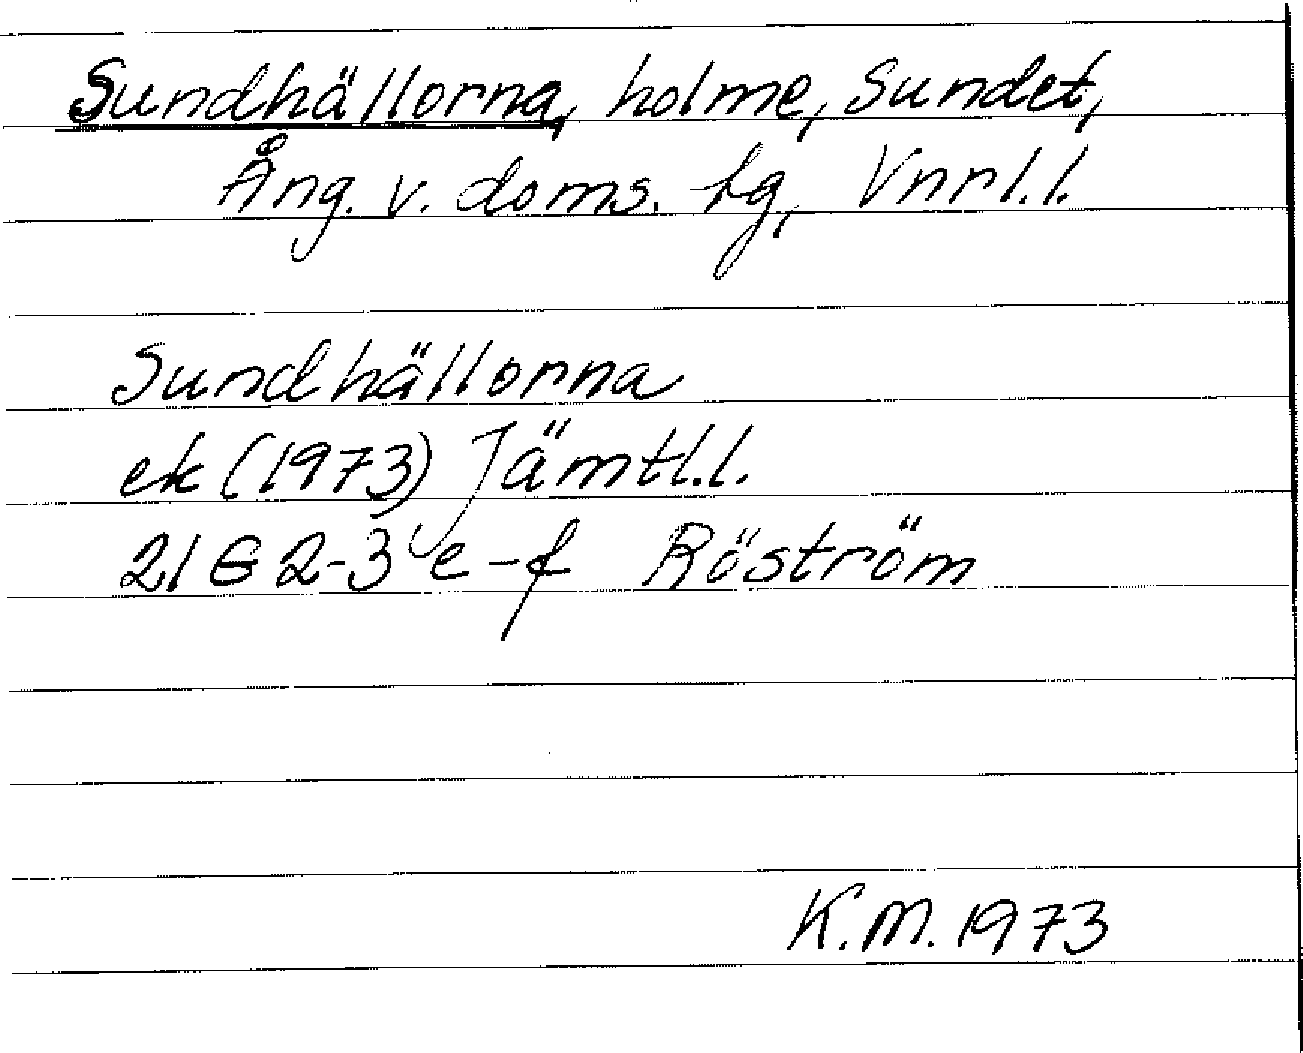 Sundhällorna, holme, Sundet,
Ång. v. doms. tg, Vnrl.l.
Sundhällorna
ek (1973) Jämtl.l.
21 G 2-3 e-f Röström
K.M. 1973